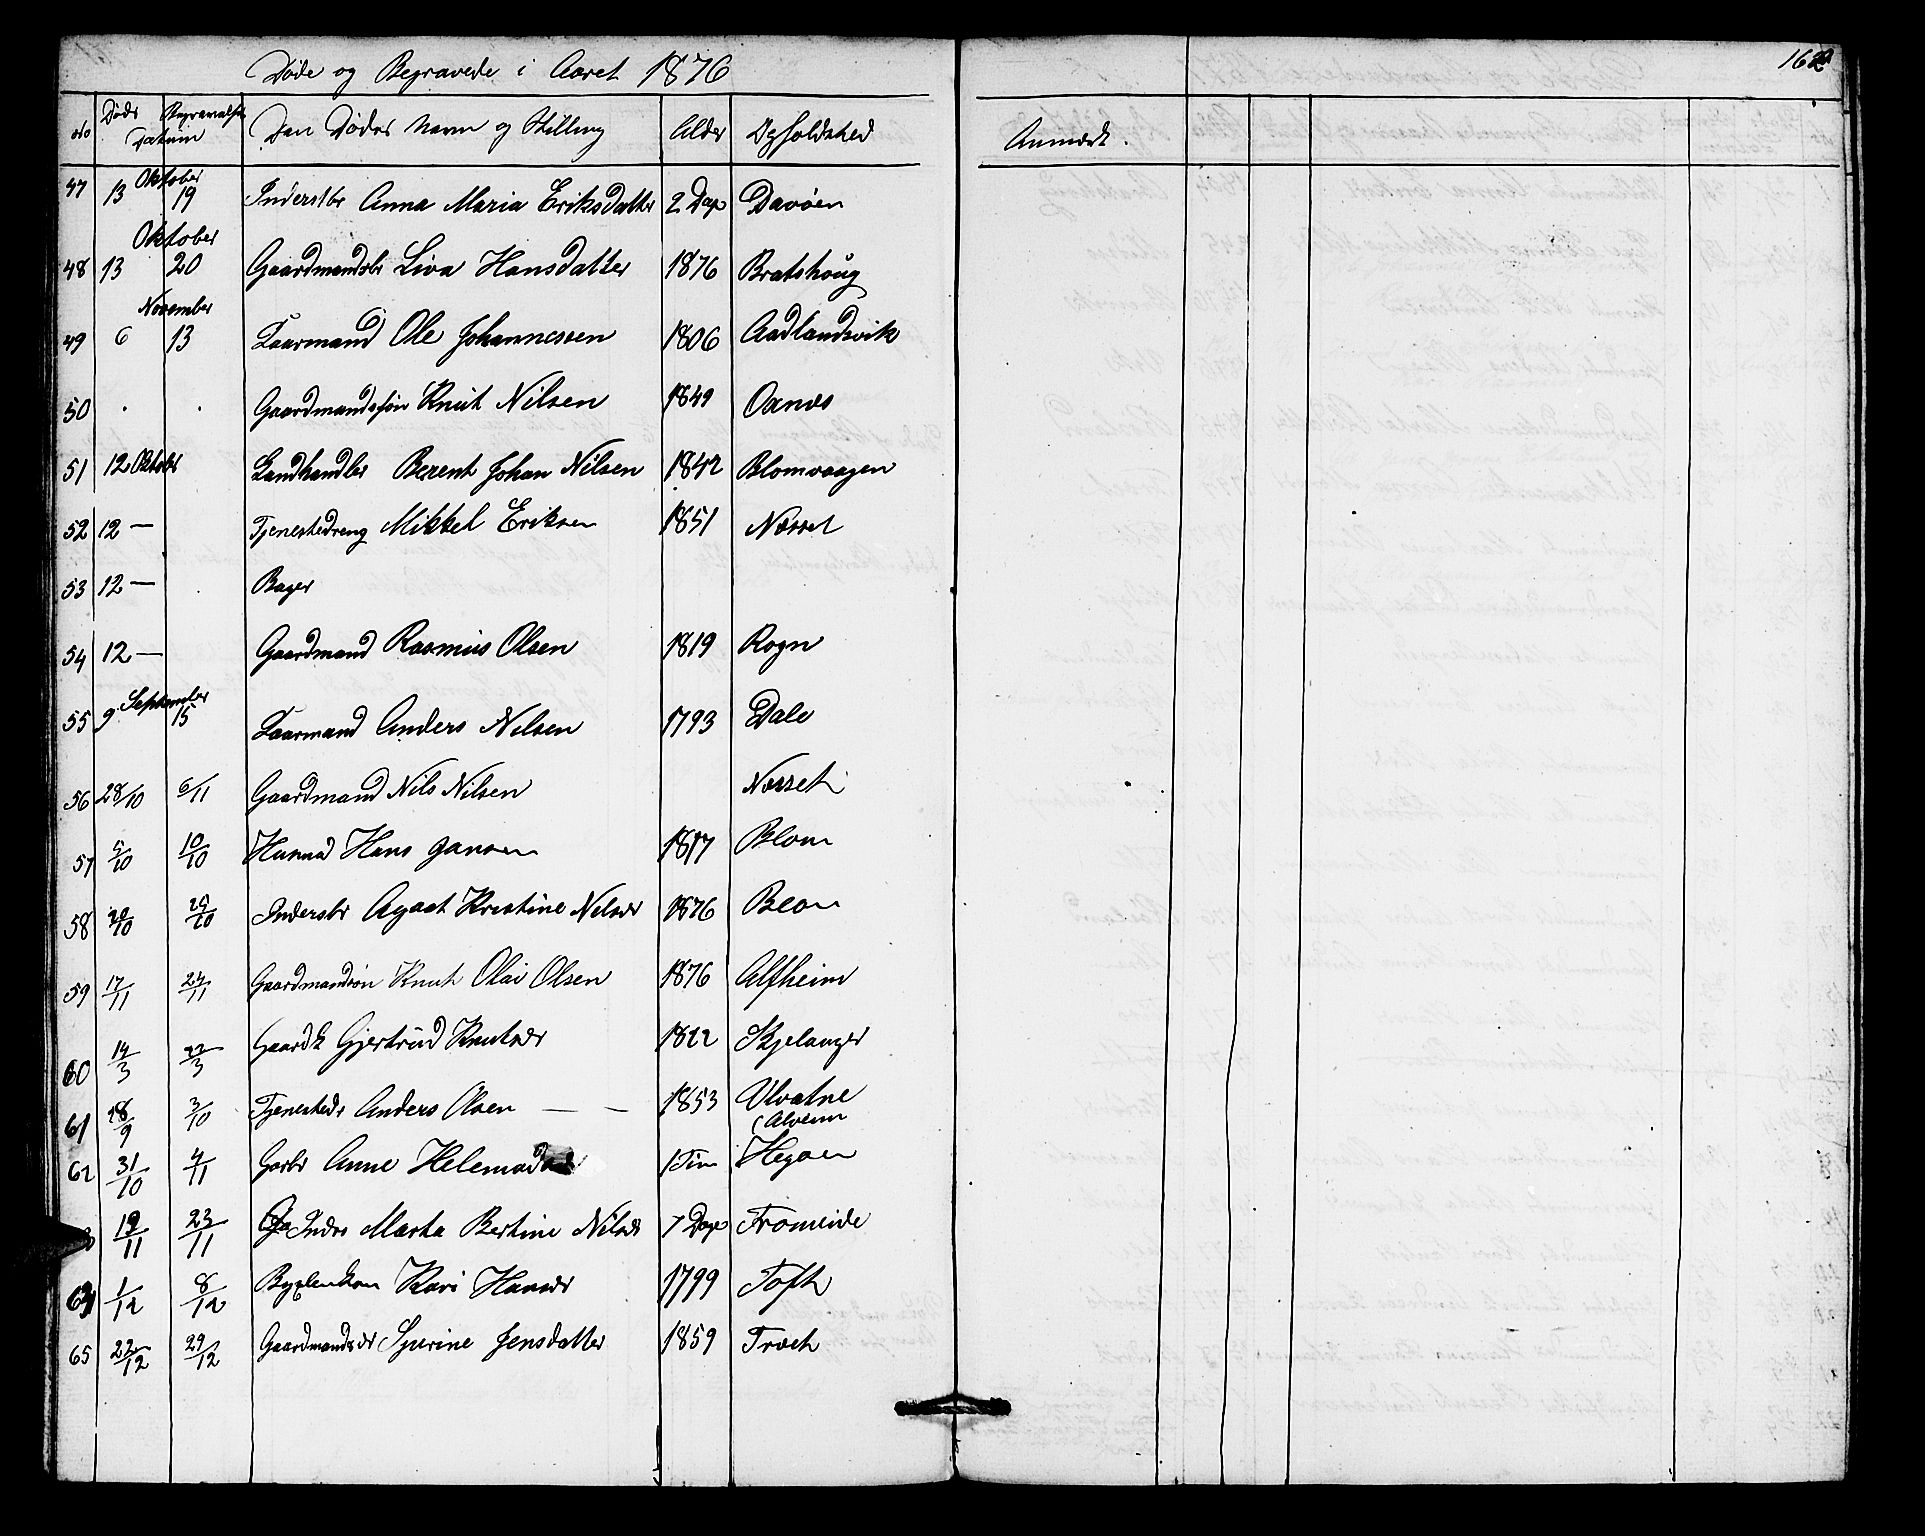 Døde og Begravede i Aaret 1876
162
No Døds Begravelses Datum Den Dødes Navn og Stilling Alder Opholdsted
Anmærk.
Oktober
47 13 19 Inderstbr Anna Maria Eriksdatter 2 Dage Davøen
Oktober
48 13 20 Gaardmandsbr Liva Hansdatter 1876 Bratshoug
November
49 6 13 Kaarmand Ole Johannessen 1806 Aadlandsvik
50 . . Gaardmandssøn Knut Nilsen 1849 Oanes
51 12 Oktober Landhandler Berent Johan Nilsen 1842 Blomvaagen
52 12 — Tjenestedreng Mikkel Eriksen 1851 Næsset
53 12 — Bager
54 12 — Gaardmand Rasmus Olsen 1819 Rogn
September
55 9 15 Kaarmand Anders Nilsen 1793 Dale
56 28/10 6/11 Gaardmand Nils Nilsen Næsset
57 5/10 10/10 Husmd Hans Jansen 1817 Blom
58 20/10 Indersbr Agaat Kristine Nilsdr 1876 Blom
59 17/11 24/11 Gaardmandsøn Knut Olai Olsen 1876 Alfheim
60 14/3 22/3 Gaardk Gjertrud Knutsdr 1822 Skjelanger
61 28/9 3/10 Tjenestedr Anders Olsen — — 1853 Ulvatne
(Alvem
62 31/10 4/11 Garbr Anne Helemad 1 Tim Hegøen
19/11 23/11 Inder Marta Bertine Nilsdr 7 Dage Fromeide
64 1/12 8/12 Kari Hansdr 1799 Toft
65 22/12 29/12 Gaardmandsdr Sjurine Jensdatter 1859 Træet